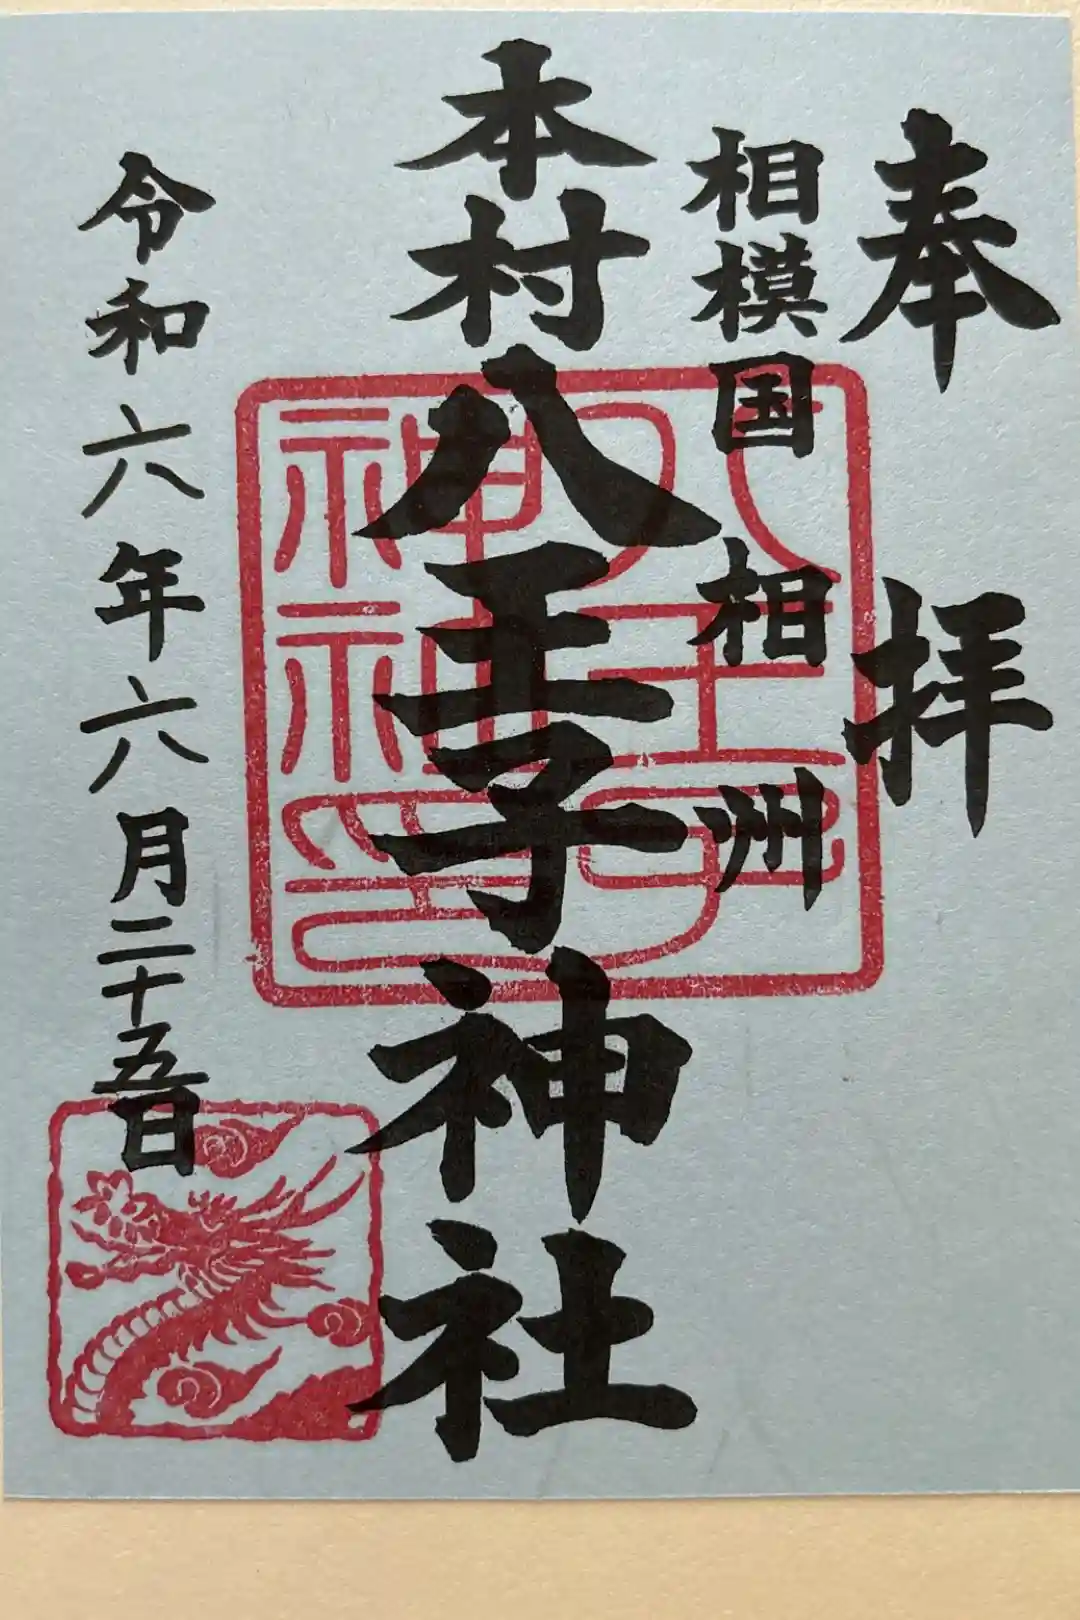 奉拝
相模国 相州
本村八王子神社
八王子
神社印
令和六年六月二十五日